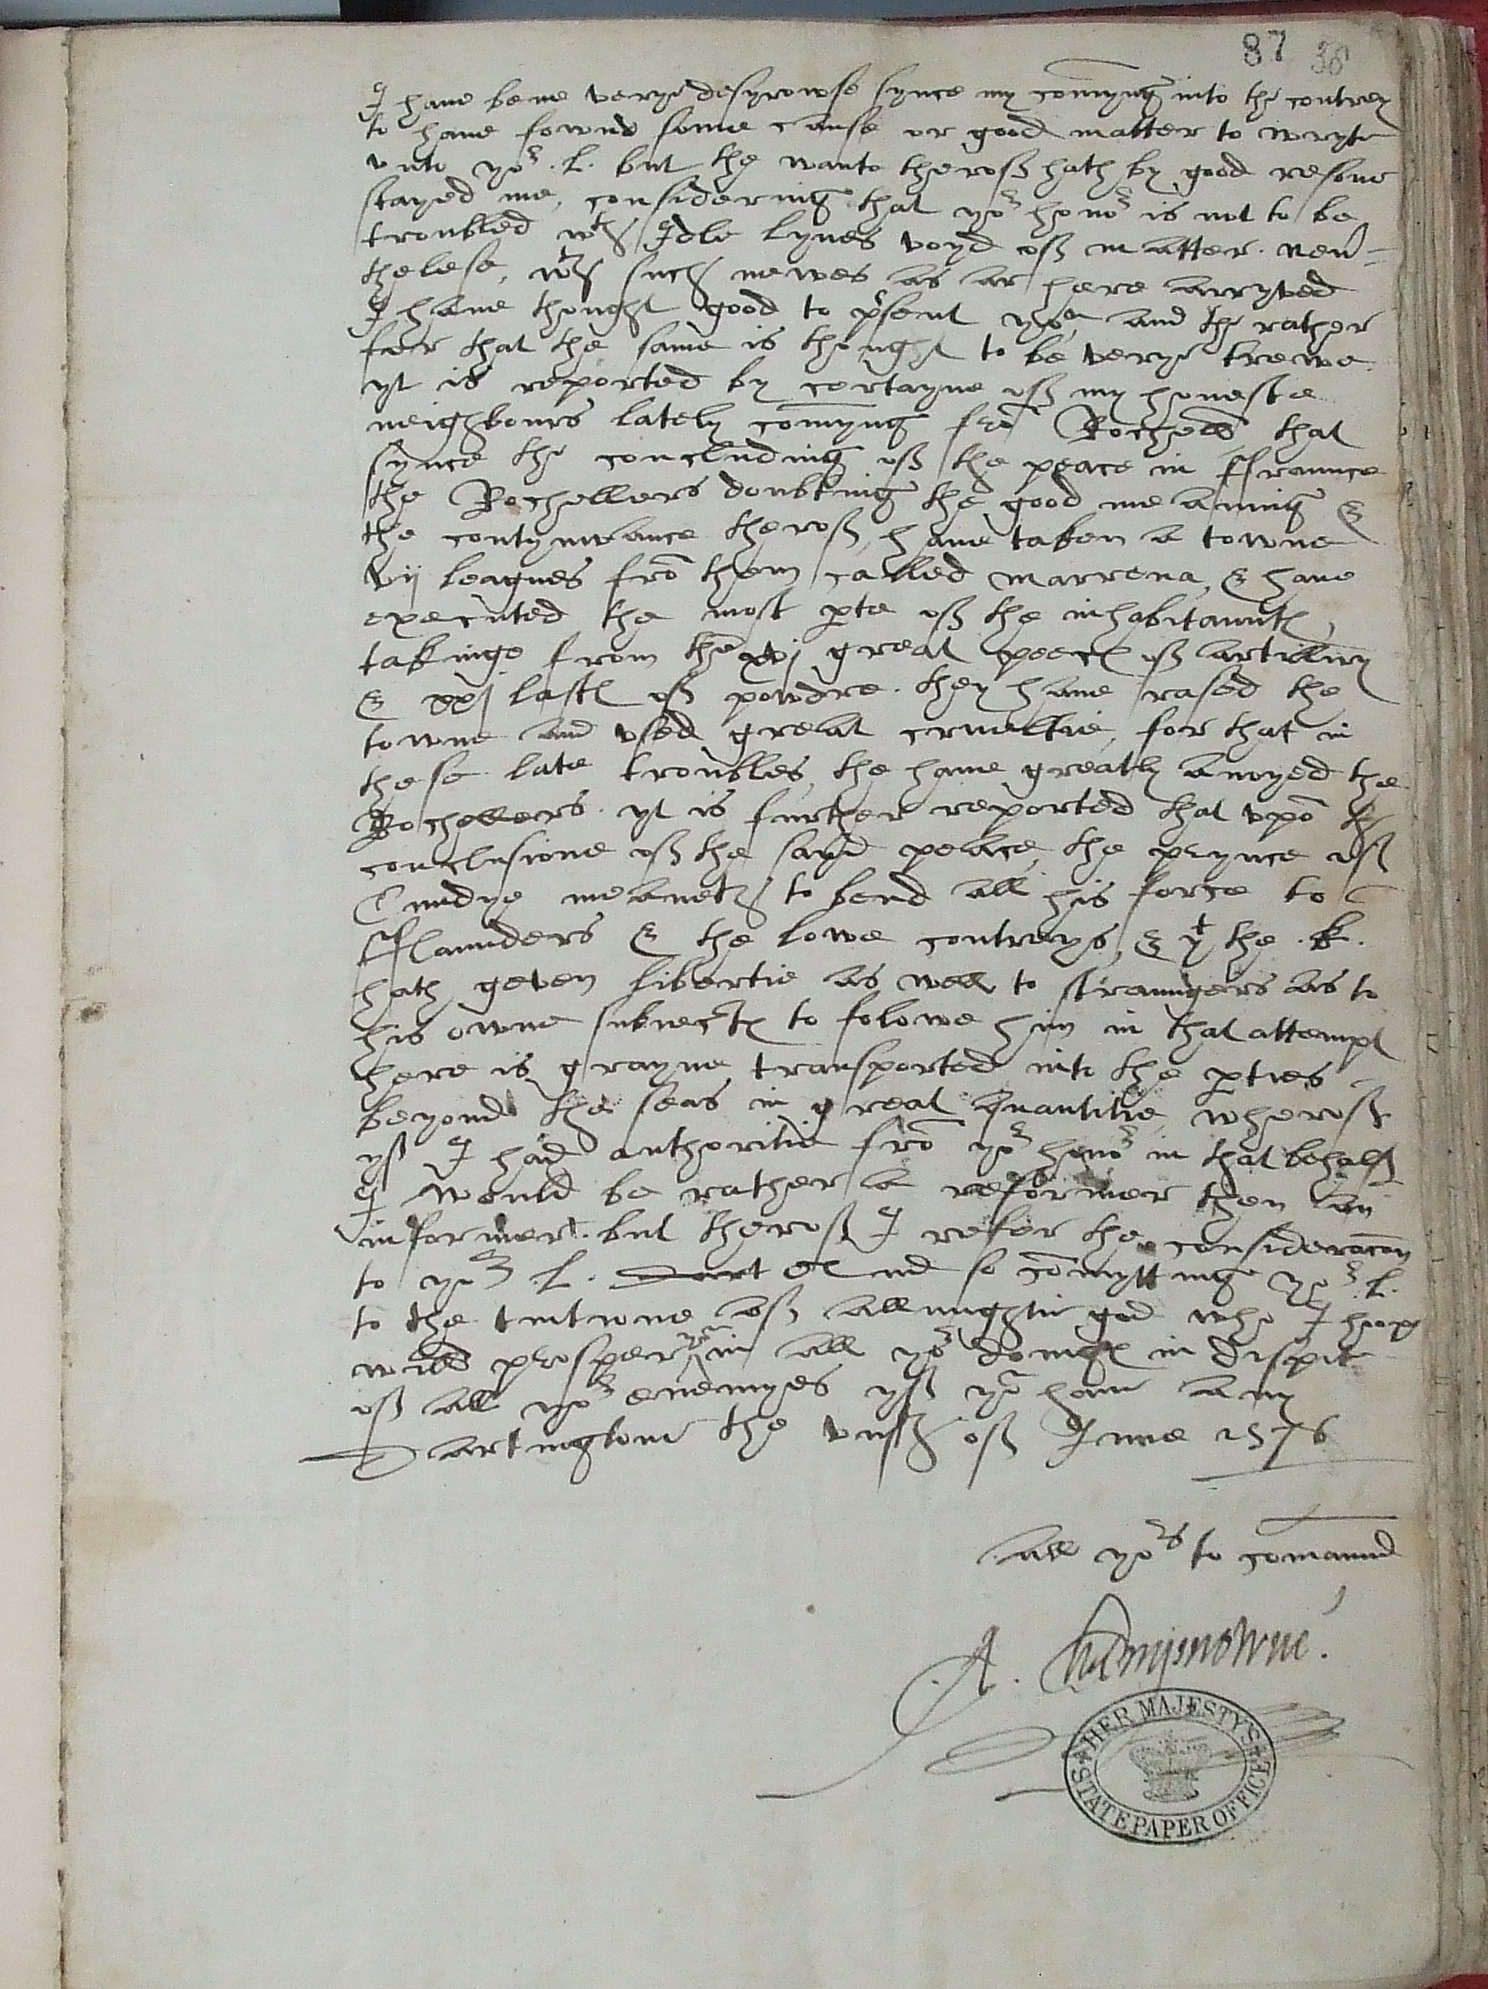 87 38
I have bene verye desyrowse synce my comyng into the contrey
to have fownd some cause or good matter to wryte
unto yor .L. but the wante theroff hath by good resone
stayed me, considering that yor honor is not to be
troubled wth Idle lynes voyd off matter. nev=
thelese, wth such newes as ar here arryved
I have thought good to psent you and the rather
for that the same is thought to be verye trewe.
yt is reported by certayne off my honeste
neighbours lately comyng fro Rochell, that
synce the concluding off the peace in ffraunce
the Rochellers doubting the good meaning &
the contynuance theroff, have taken a towne
vij leagues fro them called marrena, & have
executed the most pte off the inhabitauntes,
takinge from the xvj great peeces off artillery
& xxj lastes off powdre. they have rased the
towne and used great crueltie, for that in
these late troubles, the have greatly anoyed the
Rochellers. yt is further reported that upo the
conclusione off the sayd peace, the prynce off
Cundye meaneth to bend all his force to
fflaunders & the lowe contreys, & yt the .k.
hath geven libertie as well to straungers as to
his owne subiectes to folowe him in that attempt
here is grayne transported into the pties
beyond the seas in great quantitie, wheroff
yff I had authoritie fro yor honor in that behalff
I would be rather a reformer then an
informer. but theroff I refer the consideracon
to yor .L. And so comytting yor .L.
to the tuitione off allmightie god who I hope
will prosper you in all yor doinges in dispite
off all yor enemyes yff you have any
Dartingtone the viijth off June 1576
all yors to comaund
A. Champernowne.
HER MAJESTY'S STATE PAPER OFFICE